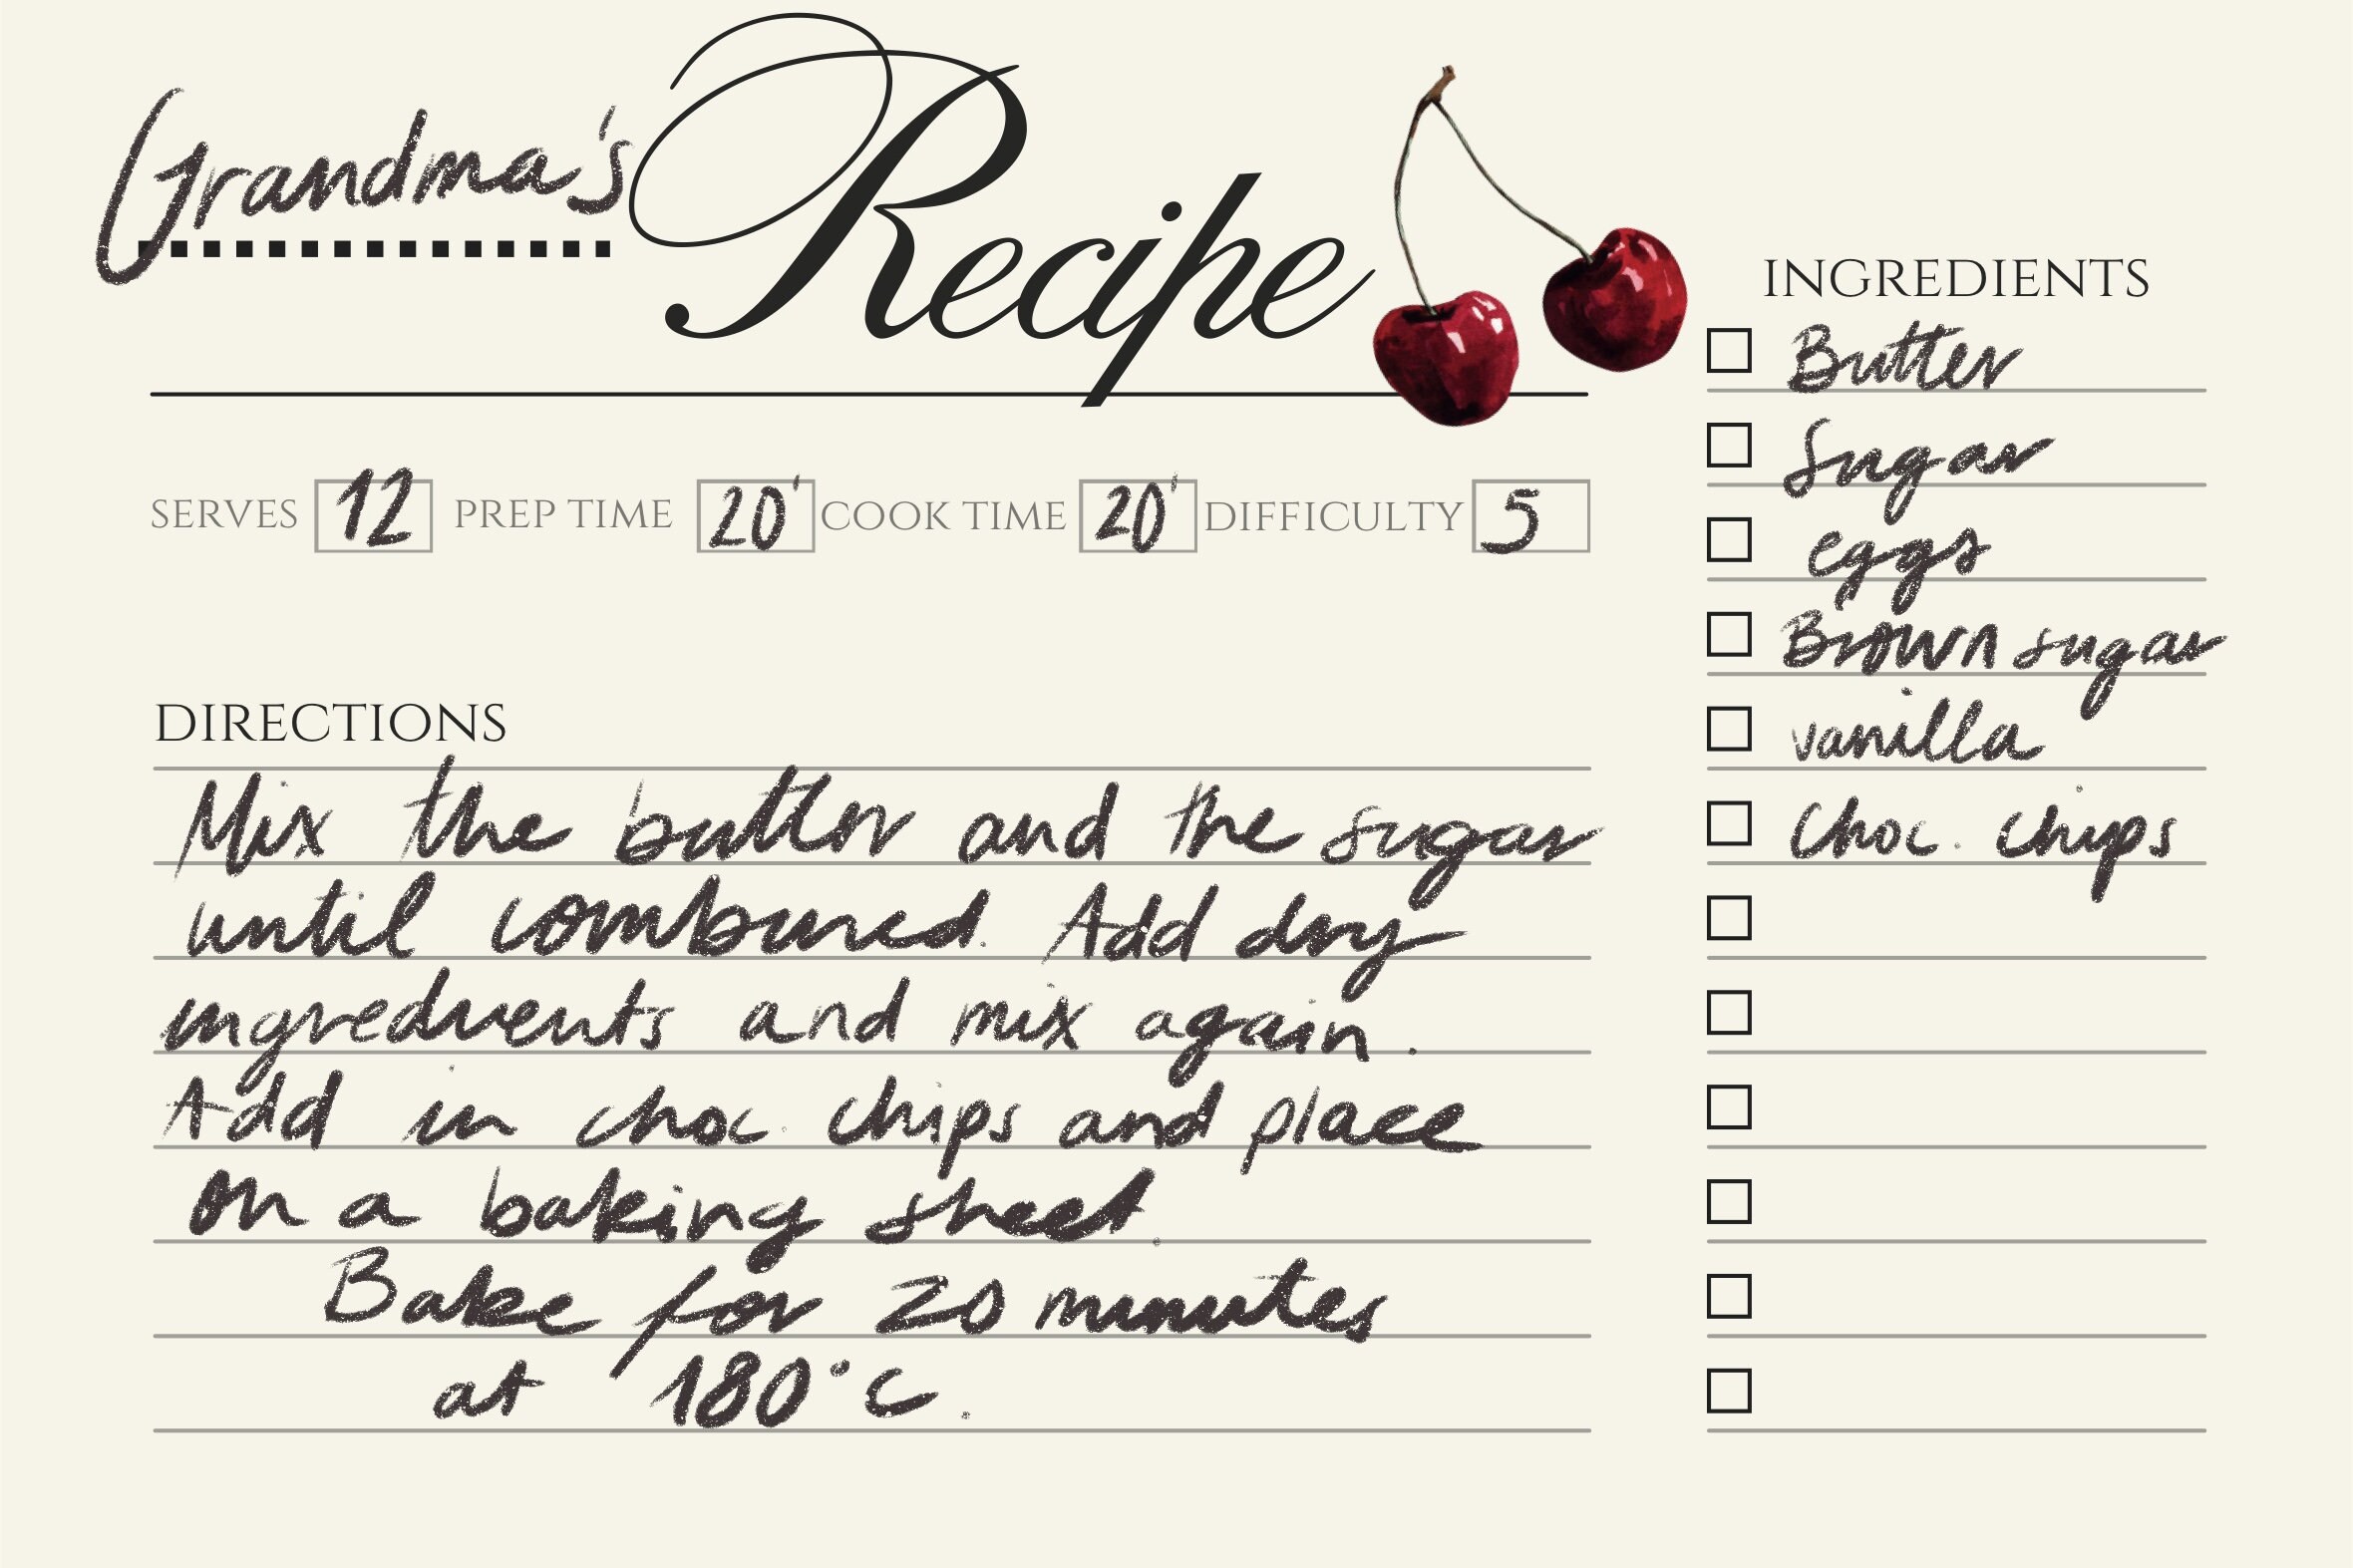 Grandma's Recipe
SERVES 12 PREP TIME 20' COOK TIME 20' DIFFICULTY 5
DIRECTIONS
Mix the butter and the sugar
until combined. Add dry
ingredients and mix again.
Add in choc. chips and place
on a baking sheet.
Bake for 20 minutes
at 180°C.
INGREDIENTS
Butter
Sugar
eggs
Brown sugar
vanilla
Choc. chips